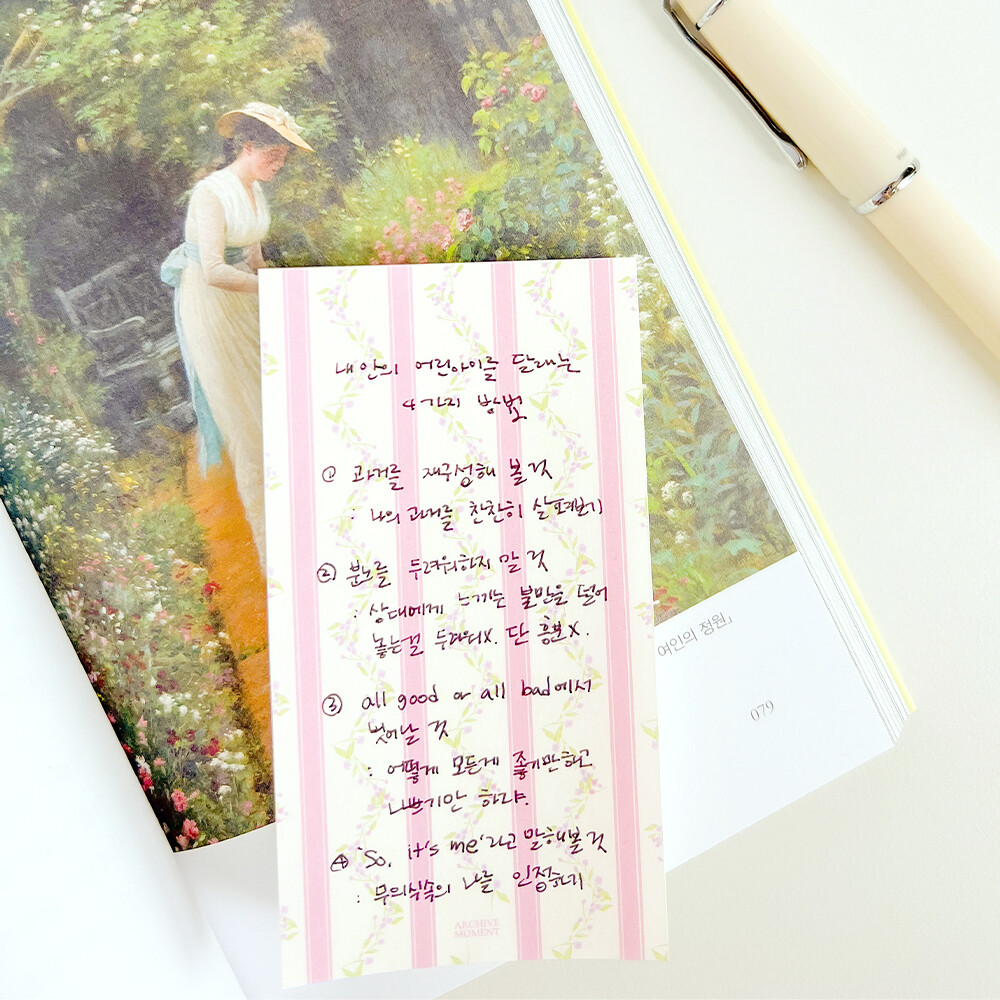 내 안의 어린아이를 달래는
4가지 방법
① 과거를 재구성해 볼 것
: 나의 과거를 찬찬히 살펴보기
② 분노를 두려워하지 말 것
: 상대에게 느끼는 불만을 털어
놓는걸 두려워X. 단 흥분X.
③ all good or all bad에서
벗어날 것
: 어떻게 모든게 좋기만하고
나쁘기만 하랴.
④ 'So, it's me'라고 말해볼 것
: 무의식속의 나를 인정하기
ARCHIVE
MOMENT
여인의 정원」
079